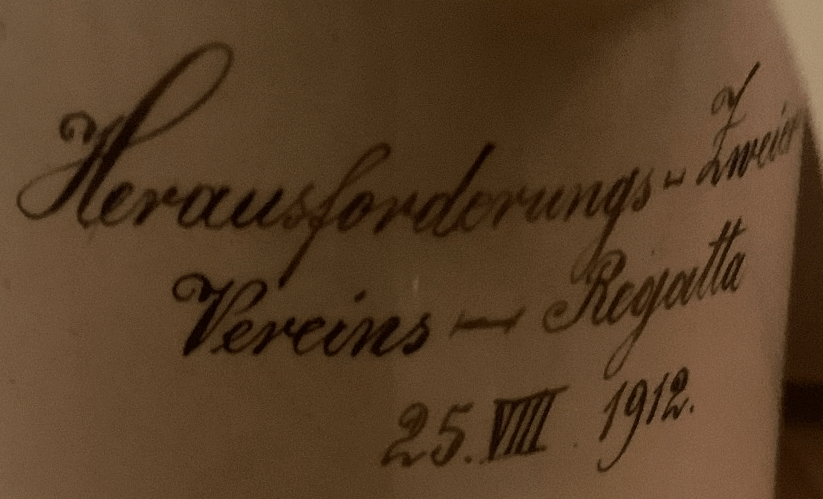 Herausforderungs-Zweier
Vereins-Regatta
25. VIII. 1912.